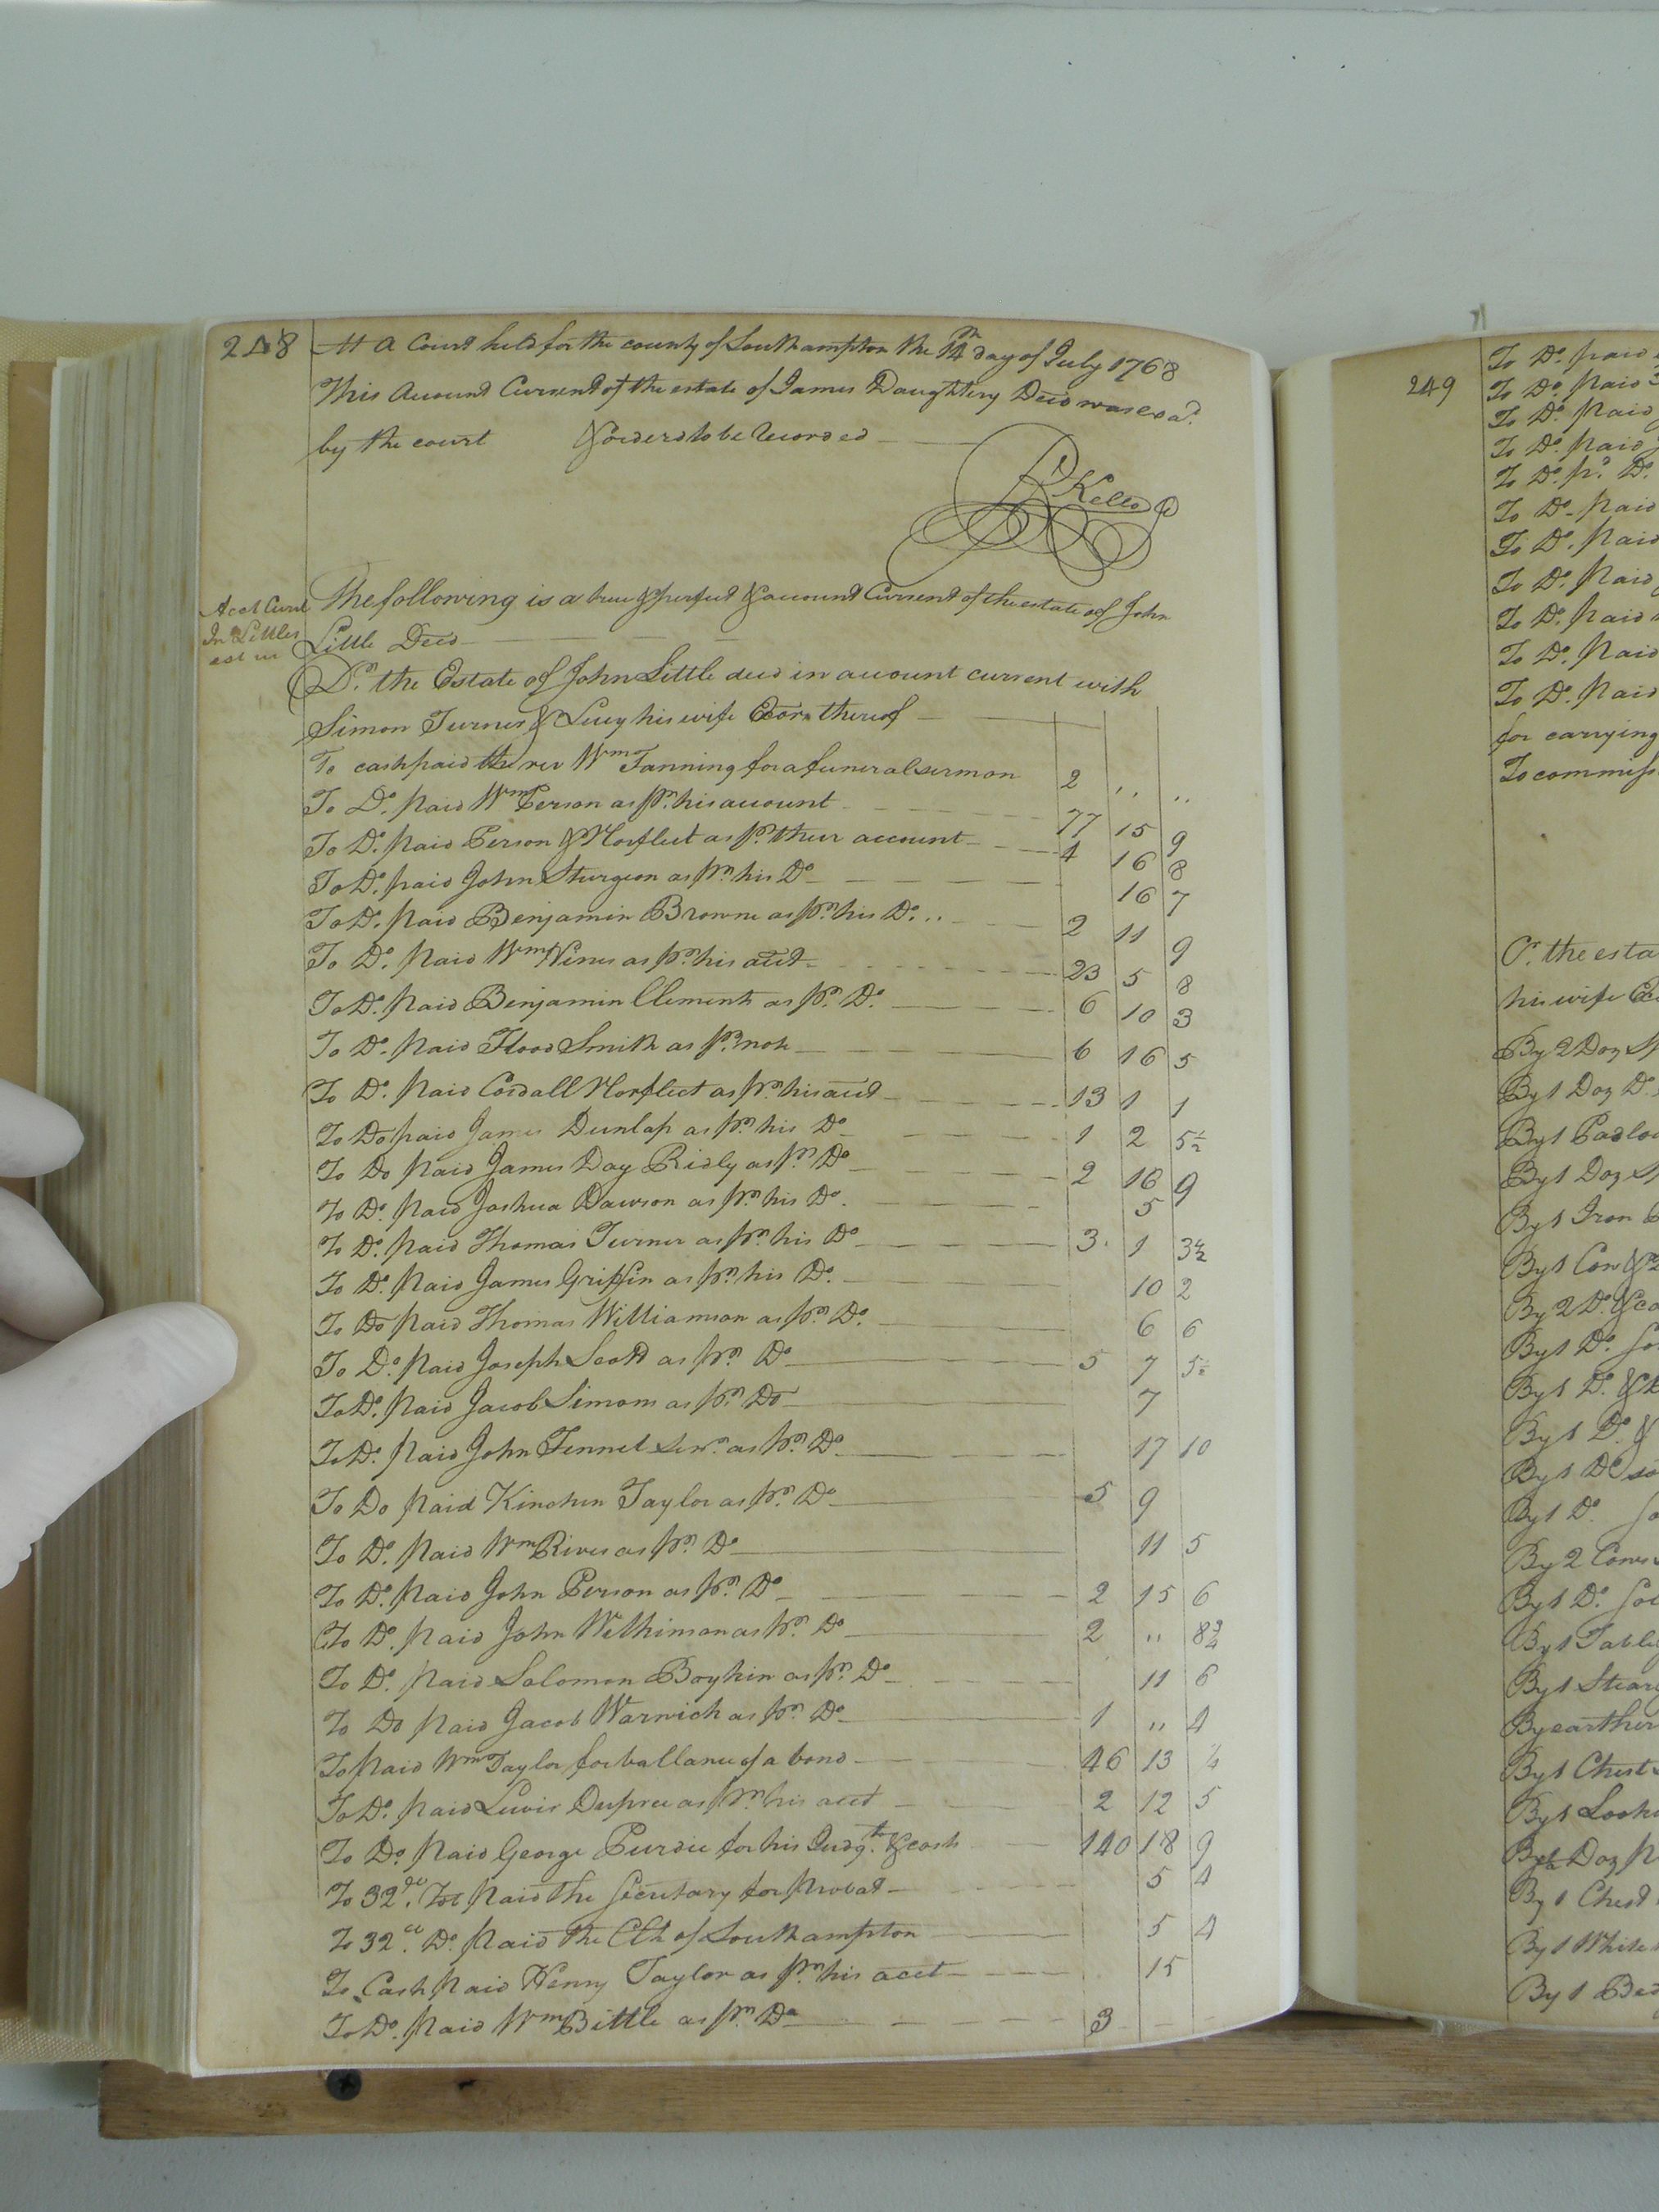 248
At a Court held for the county of Southampton the 14th day of July 1768
This Account Current of the estate of James Daughtery Decd was exad.
by the court & orderd to be Recorded
R Kello
Acct Curnt
Jn Littles
est
The following is a true & perfect & account Current of the estate of John
Little Decd
Dr. the Estate of John Little decd in account current with
Simon Turner & Lucy his wife Exorx thereof
To cash paid the rev Wm Fanning for a funeral sermon 2 ,, ,,
To Do. paid Wm Person as pr. his account 77 15 9
To Do. paid Person & Norfleet as pr. their account 4 16 8
To Do. paid John Sturgeon as pr. his Do 16 7
To Do. paid Benjamin Browne as pr. his Do. 2 11 9
To Do. paid Wm Hines as pr. his acct 23 5 8
To Do. paid Benjamin Clements as pr. Do. 6 10 3
To Do. paid Flood Smith as pr. note 6 16 5
To Do. paid Cordall Norfleet as pr. his acct 13 1 1
To Do paid James Dunlap as pr. his Do 1 2 5½
To Do paid James Day Ridly as pr. Do 2 16 9
To Do. paid Joshua Dawson as pr. his Do. 5
To Do. paid Thomas Turner as pr. his Do 3 1 3½
To Do. paid James Griffin as pr. his Do. 10 2
To Do paid Thomas Williamson as pr. Do. 6 6
To Do. paid Joseph Scott as pr. Do 5 7 5½
To Do. paid Jacob Simons as pr. Do 7
To Do. paid John Fennel Senr. as pr. Do 17 10
To Do paid Kinchen Taylor as pr. Do 5 9
To Do. paid Wm Rives as pr. Do 11 5
To Do. paid John Person as pr. Do 2 15 6
To Do. paid John Wilkinson as pr. Do 2 ,, 8¾
To Do. paid Solomon Boykin as pr. Do 11 6
To Do paid Jacob Warwick as pr. Do 1 ,, 4
To paid Wm Taylor for ballance of a bond 46 13 4
To Do. paid Lewis Dupree as pr. his acct 2 12 5
To Do. paid George Purdie for his Judgt. & cash 140 18 9
To 32 Tob paid the Secretary for probat 5 4
To 32 Do. paid the Clk of Southampton 5 4
To Cash paid Henry Taylor as pr. his acct 15
To Do. paid Wm Bittle as pr. Do 3
249
To Do. paid
To Do. paid
To Do. paid
To Do. paid
To Do. pd. Do.
To Do. paid
To Do. paid
To Do. paid
To Do. paid
To Do. paid
To Do. paid
for carrying
To commiss
Cr. the esta
his wife
By 2 Doz
By 1 Doz Do.
By 1 Padlo
By 1 Doz
By 1 Iron
By 1 Cow &
By 2 Do. &
By 1 Do.
By 1 Do. &
By 1 Do &
By 1 Do
By 1 Do
By 2 Cows
By 1 Do.
By 1 Table
By 1 Stear
By earthen
By 1 Chest
By 1 Looki
Doz
By 1 Chest
By 1 White
By 1 Bed